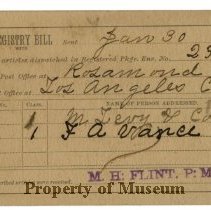 REGISTRY BILL Sent Jan 30
WITH
articles dispatched in Registered Pkge. Env. No. 23
Post Office at Rosamond
Los Angeles
CLASS. NAME OF PERSON ADDRESSED.
1 M Levy & Co
1 F A Vance
M. H. FLINT. P. M
Property of Museum